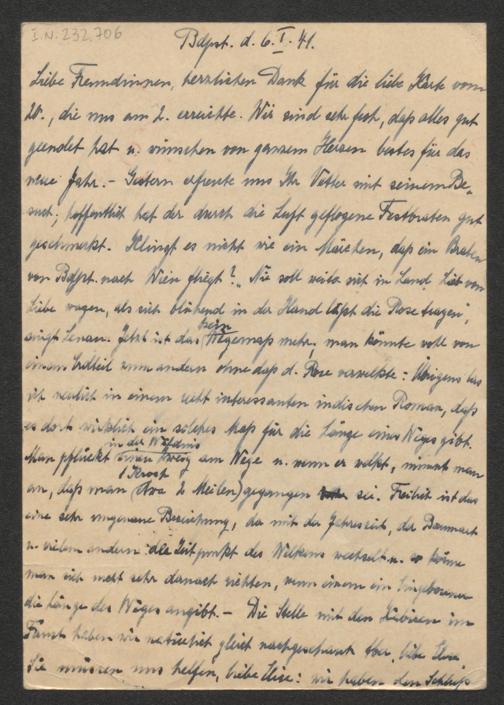 I.N. 232.706
Bdpst. d. 6. I. 41.
Liebe Freundinnen, herzlichen Dank für die liebe Karte vom
20., die uns am 2. erreichte. Wir sind sehr froh, daß alles gut
geendet hat u. wünschen von ganzem Herzen bestes für das
neue Jahr. – Gestern erfreute uns Ihr Vetter mit seinem Be-
such; hoffentlich hat der durch die Luft geflogene Festbraten gut
geschmeckt. Klingt es nicht wie ein Märchen, daß ein Braten
von Bdpst. nach Wien fliegt? „Nie soll weiter sich in Land, Lieb von
Liebe wagen, als sich blühend in der Hand läßt die Rose tragen",
singt Lenau. Jetzt ist das kein Wegemaß mehr, man könnte wohl von
einem Erdteil zum andern ohne daß d. Rose verwelkte: Übrigens las
ich neulich in einem recht interessanten indischen Roman, daß
es dort wirklich ein solches Maß für die Länge eines Weges gibt.
Man pflückt in der Wildnis einen Zweig am Wege u. wenn er welkt, nimmt man
an, daß man 1 Krosh (etwa 2 Meilen) gegangen sei. Freilich ist das
eine sehr ungenaue Bezeichnung, da mit der Jahreszeit, der Baumart
u. vielem andern der Zeitpunkt des Welkens wechselt u. so könne
man sich nicht sehr danach richten, wenn einem ein Eingeborener
die Länge des Weges angibt. – Die Stelle mit den
Faust haben wir natürlich gleich nachgeschaut. Aber, liebe Else
Sie müssen uns helfen, liebe Else: wir haben den Schluß